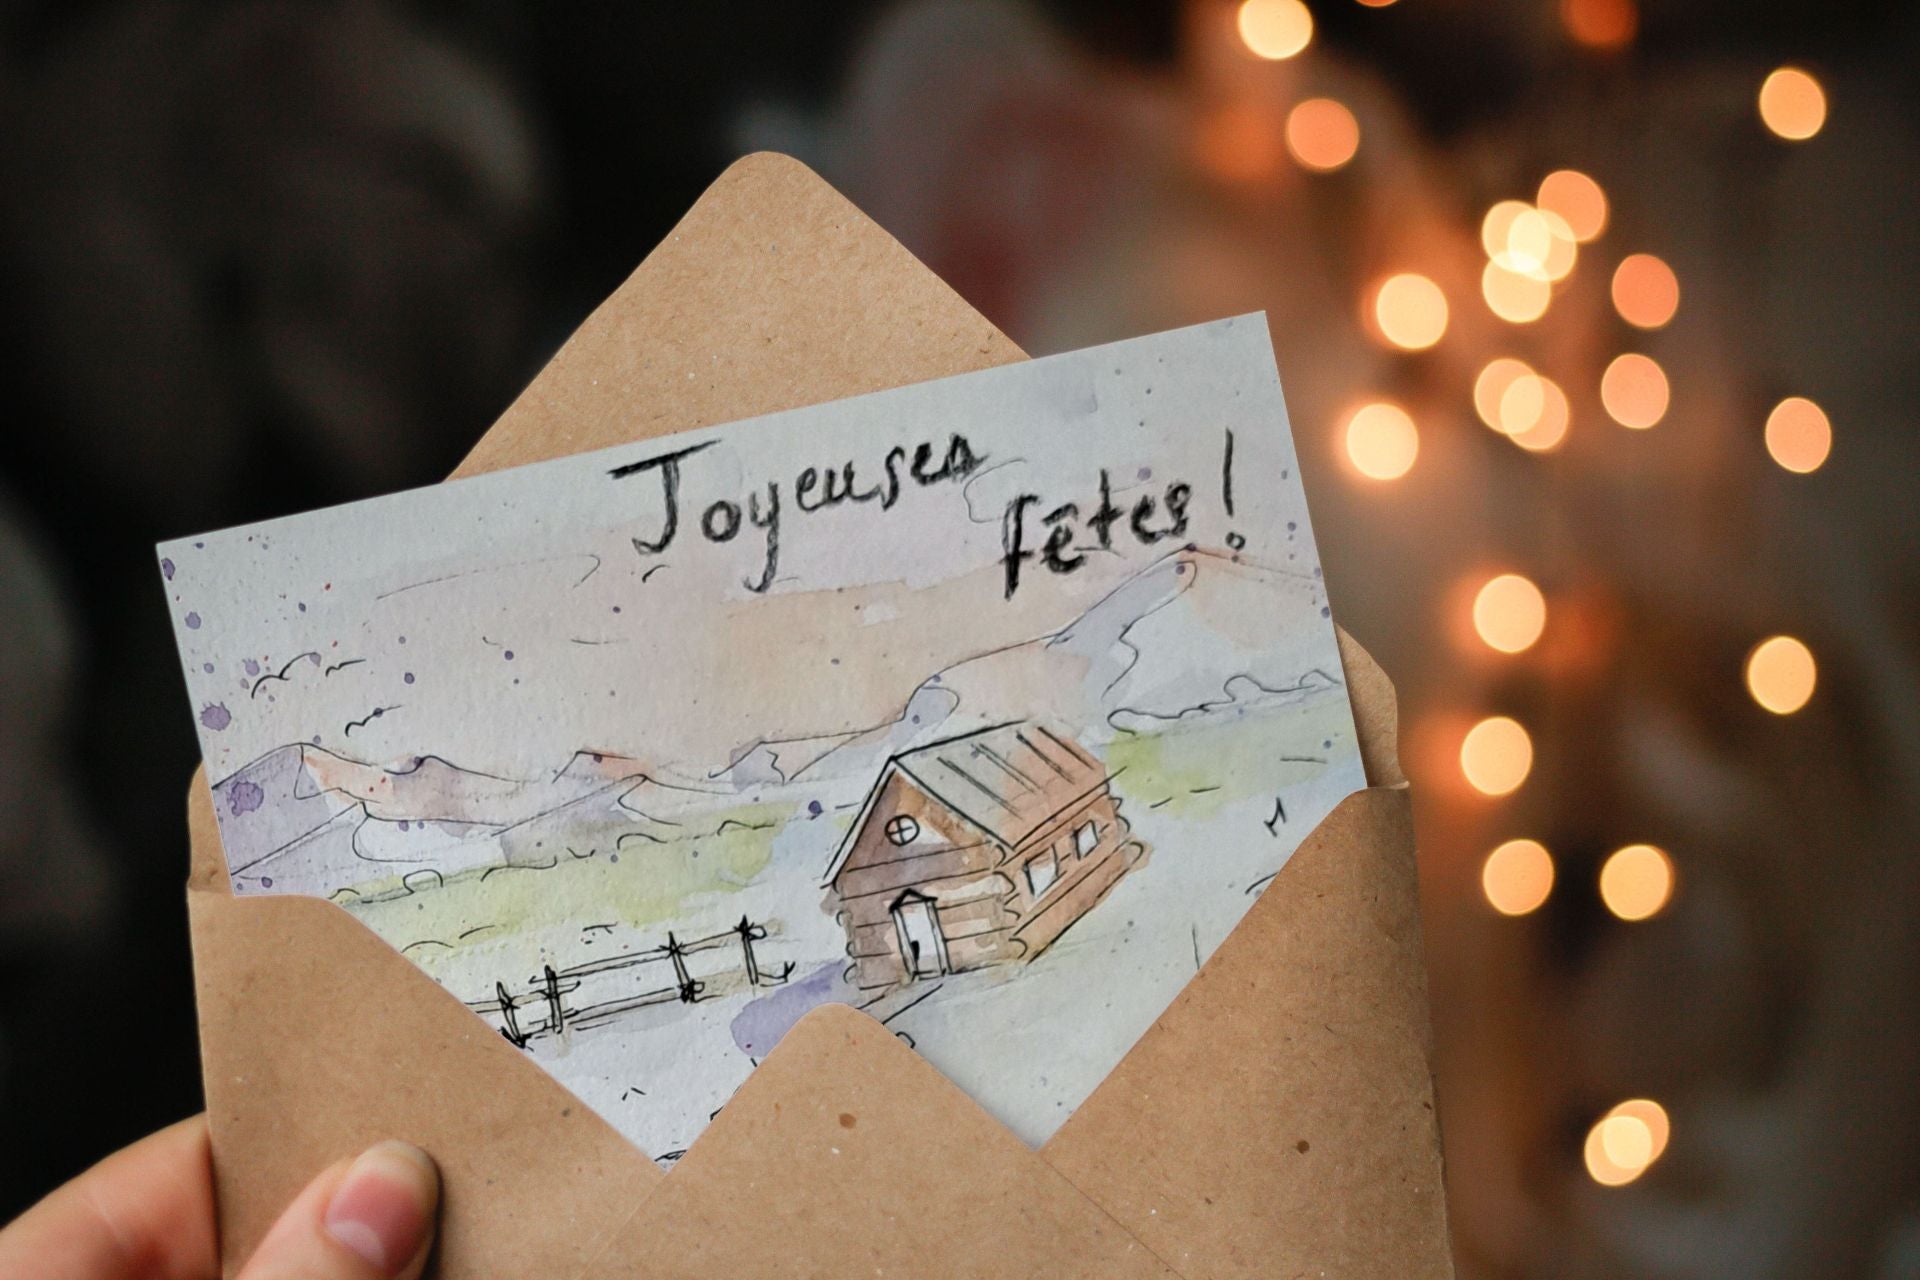 Joyeuses
fêtes!